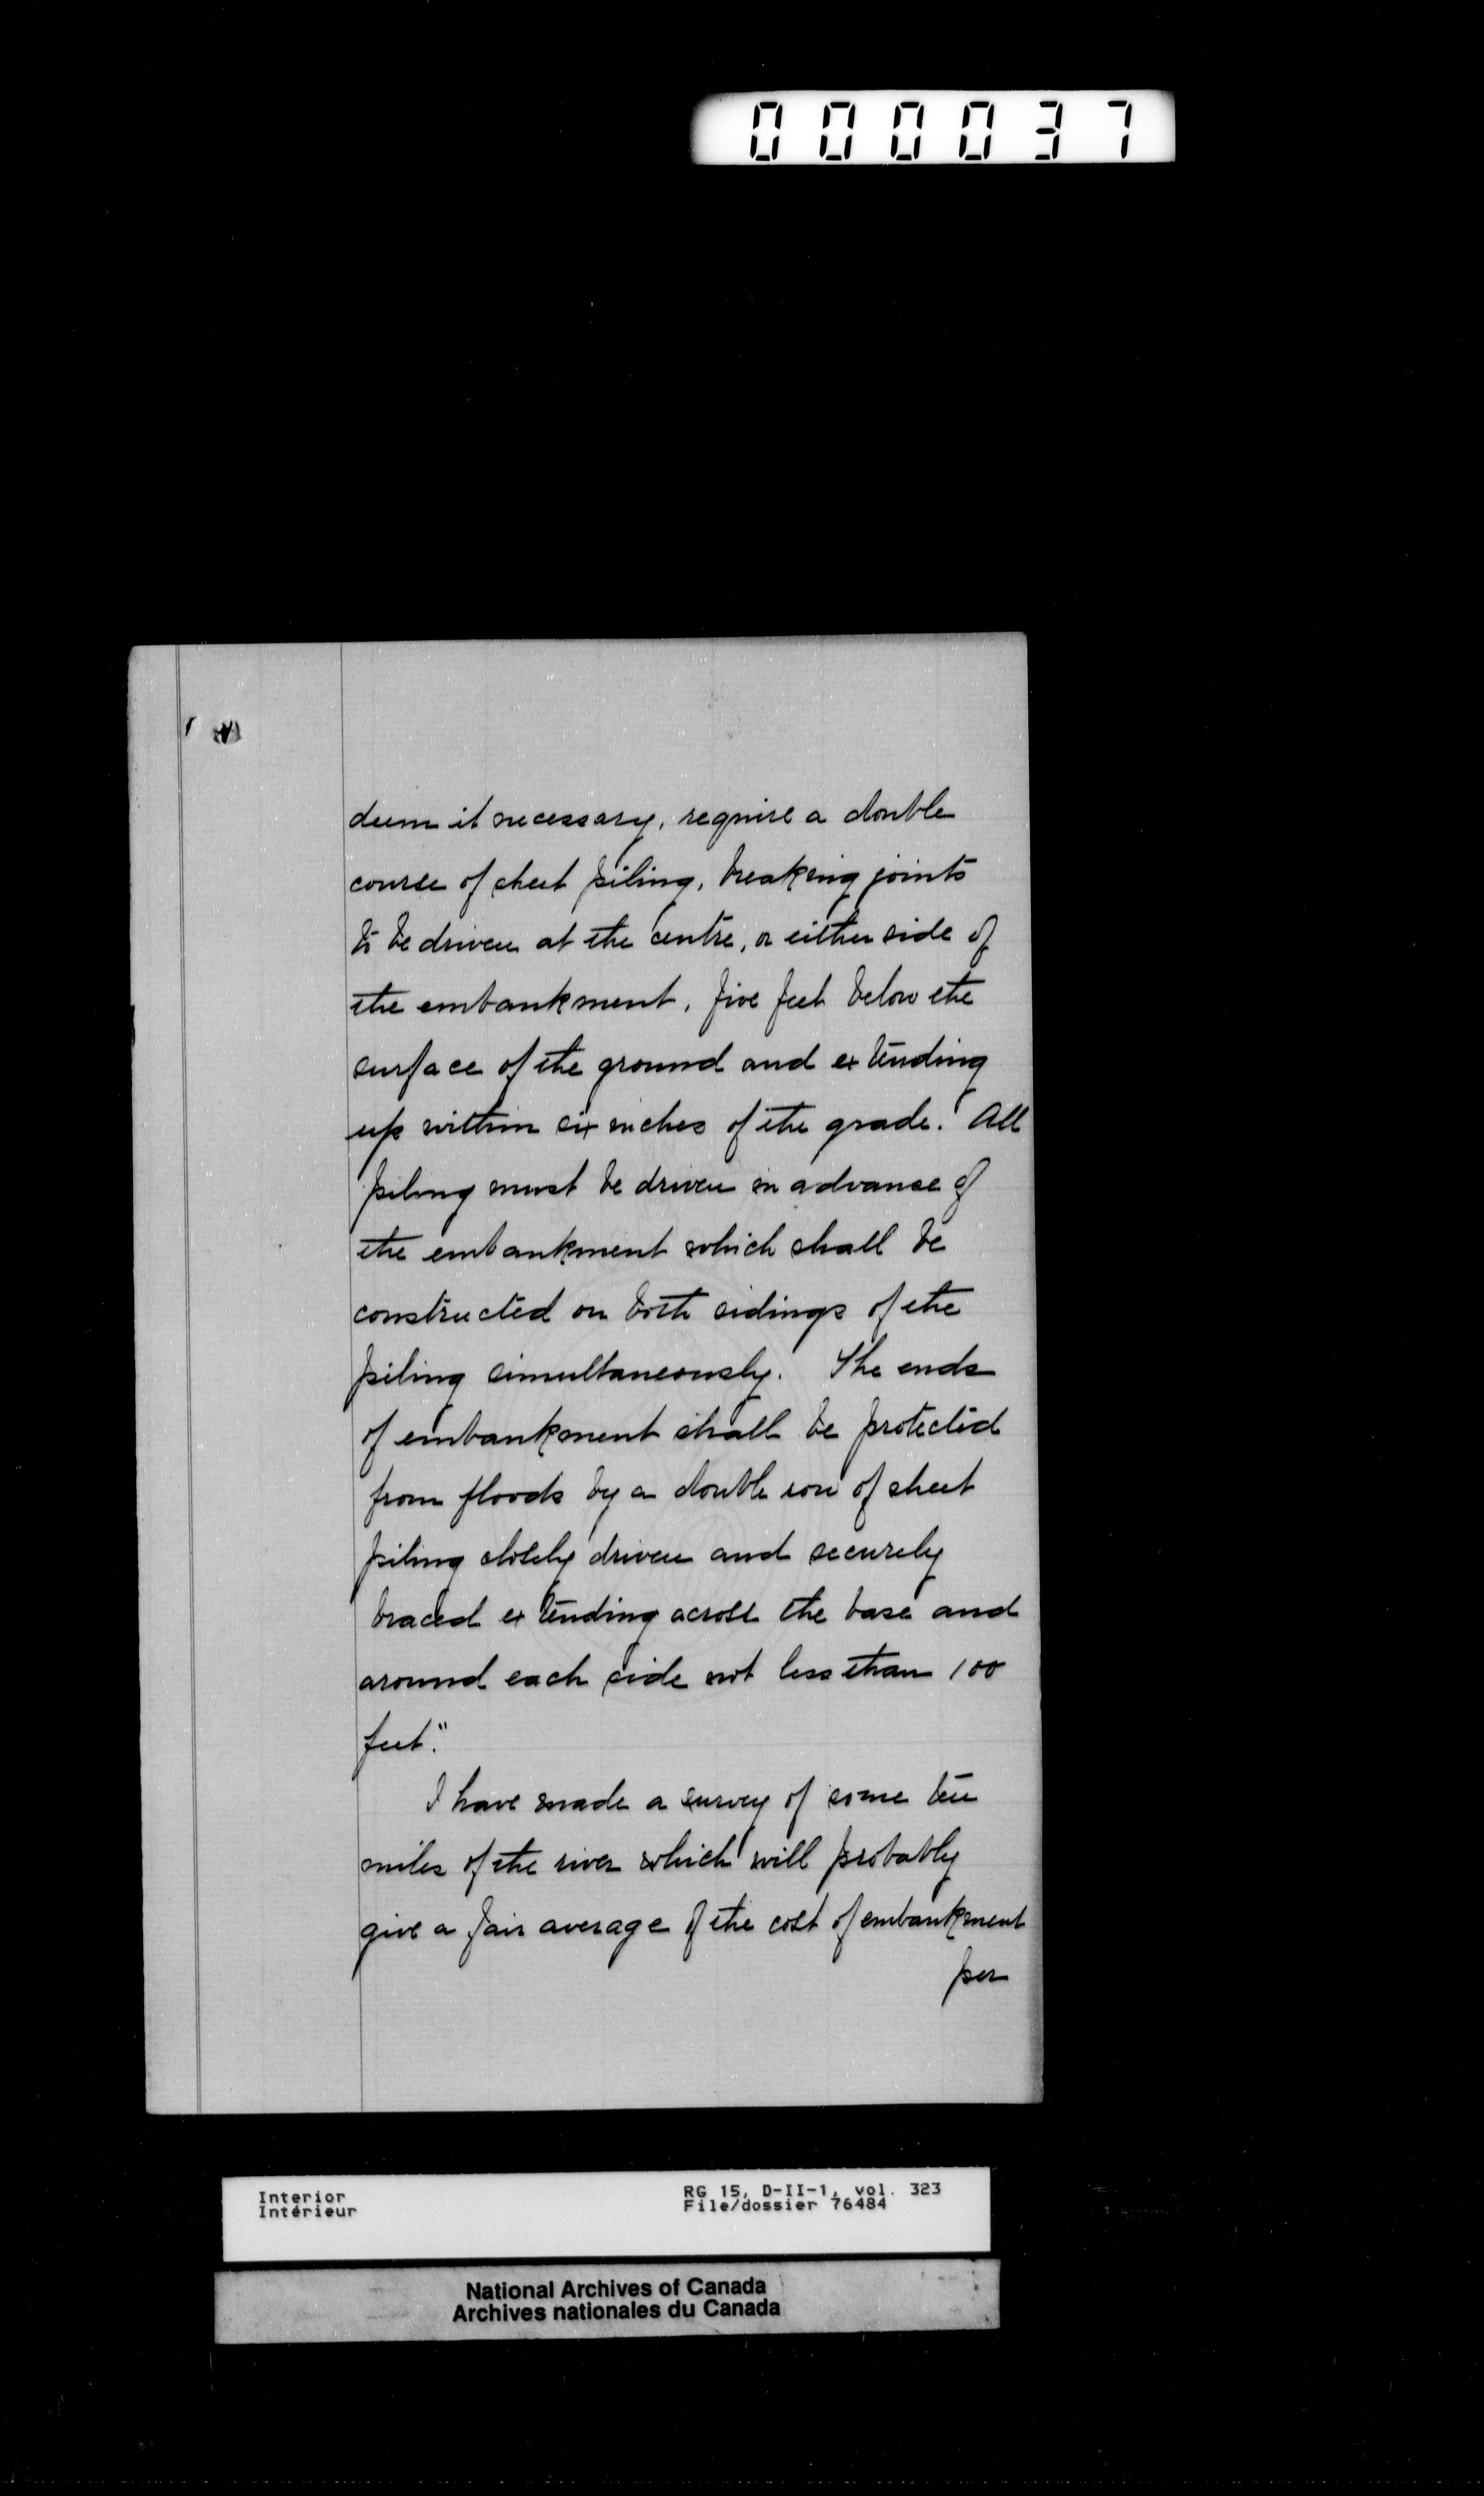 000037
deem it necessary, require a double
course of sheet piling, breaking joints
to be driven at the centre, or either side of
the embankment, five feet below the
surface of the ground and extending
up within six inches of the grade. All
piling must be driven in advance of
the embankment which shall be
constructed on both sidings of the
piling simultaneously. The ends
of embankment shall be protected
from floods by a double row of sheet
piling closely driven and securely
braced extending across the base and
around each side not less than 100
feet."
I have made a survey of some ten
miles of the river which will probably
give a fair average of the cost of embankment
per
Interior
Intérieur
RG 15, D-II-1, vol. 323
File/dossier 76484
National Archives of Canada
Archives nationales du Canada